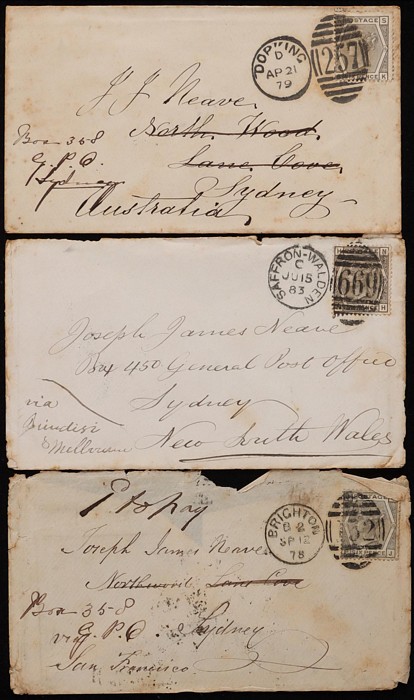 DORKING
D
AP 21
79
257
POSTAGE S
PENCE K
J J Neave
North Wood
Lane Cove
Box 358
G. P. O.
Sydney
Sydney
Australia
SAFFRON-WALDEN
C
JU 15
83
660
H H
Joseph James Neave
Box 450 General Post Office
Sydney
via
Brindisi
& Melbourne
New South Wales
BRIGHTON
B 2
SP 12
78
132
J
Joseph James Neave
Northwood Lane Cove
Box 358
via G. P. O. Sydney
San Francisco